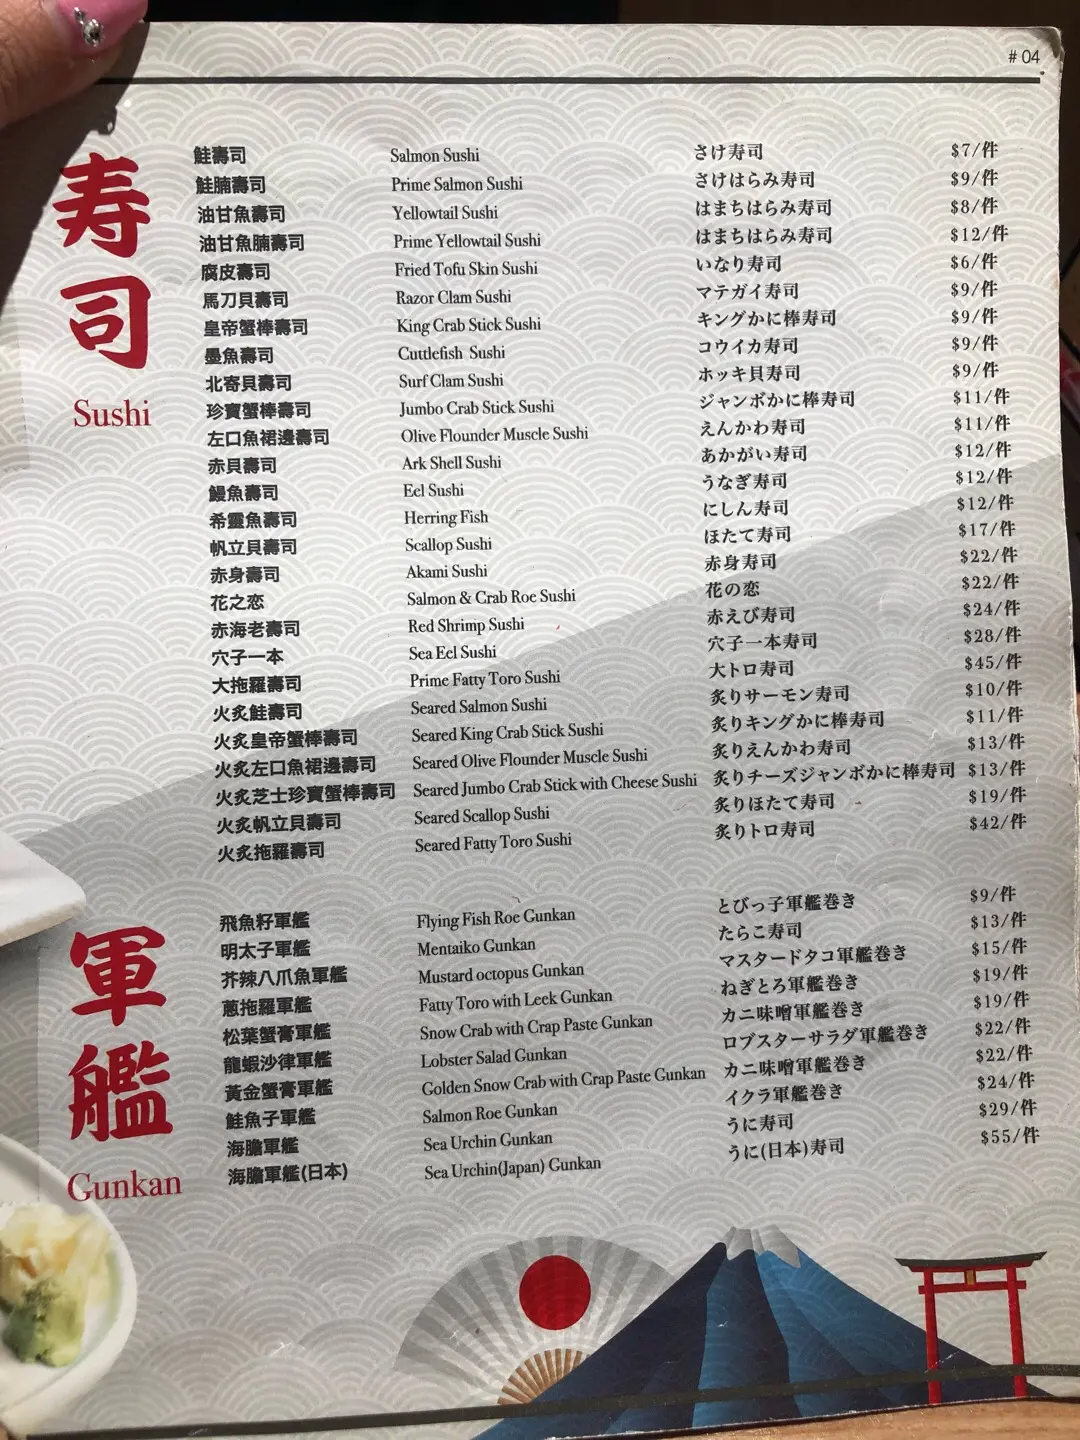 # 04
寿司
Sushi
鮭壽司 Salmon Sushi さけ寿司 $7/件
鮭腩壽司 Prime Salmon Sushi さけはらみ寿司 $9/件
油甘魚壽司 Yellowtail Sushi はまちはらみ寿司 $8/件
油甘魚腩壽司 Prime Yellowtail Sushi はまちはらみ寿司 $12/件
腐皮壽司 Fried Tofu Skin Sushi いなり寿司 $6/件
馬刀貝壽司 Razor Clam Sushi マテガイ寿司 $9/件
皇帝蟹棒壽司 King Crab Stick Sushi キングかに棒寿司 $9/件
墨魚壽司 Cuttlefish Sushi コウイカ寿司 $9/件
北寄貝壽司 Surf Clam Sushi ホッキ貝寿司 $9/件
珍寶蟹棒壽司 Jumbo Crab Stick Sushi ジャンボかに棒寿司 $11/件
左口魚裙邊壽司 Olive Flounder Muscle Sushi えんかわ寿司 $11/件
赤貝壽司 Ark Shell Sushi あかがい寿司 $12/件
鰻魚壽司 Eel Sushi うなぎ寿司 $12/件
希靈魚壽司 Herring Fish にしん寿司 $12/件
帆立貝壽司 Scallop Sushi ほたて寿司 $17/件
赤身壽司 Akami Sushi 赤身寿司 $22/件
花之恋 Salmon & Crab Roe Sushi 花の恋 $22/件
赤海老壽司 Red Shrimp Sushi 赤えび寿司 $24/件
穴子一本 Sea Eel Sushi 穴子一本寿司 $28/件
大拖羅壽司 Prime Fatty Toro Sushi 大トロ寿司 $45/件
火炙鮭壽司 Seared Salmon Sushi 炙りサーモン寿司 $10/件
火炙皇帝蟹棒壽司 Seared King Crab Stick Sushi 炙りキングかに棒寿司 $11/件
火炙左口魚裙邊壽司 Seared Olive Flounder Muscle Sushi 炙りえんかわ寿司 $13/件
火炙芝士珍寶蟹棒壽司 Seared Jumbo Crab Stick with Cheese Sushi 炙りチーズジャンボかに棒寿司 $13/件
火炙帆立貝壽司 Seared Scallop Sushi 炙りほたて寿司 $19/件
火炙拖羅壽司 Seared Fatty Toro Sushi 炙りトロ寿司 $42/件
軍艦
Gunkan
飛魚籽軍艦 Flying Fish Roe Gunkan とびっ子軍艦巻き $9/件
明太子軍艦 Mentaiko Gunkan たらこ寿司 $13/件
芥辣八爪魚軍艦 Mustard octopus Gunkan マスタードタコ軍艦巻き $15/件
蔥拖羅軍艦 Fatty Toro with Leek Gunkan ねぎとろ軍艦巻き $19/件
松葉蟹膏軍艦 Snow Crab with Crap Paste Gunkan カニ味噌軍艦巻き $19/件
龍蝦沙律軍艦 Lobster Salad Gunkan ロブスターサラダ軍艦巻き $22/件
黃金蟹膏軍艦 Golden Snow Crab with Crap Paste Gunkan カニ味噌軍艦巻き $22/件
鮭魚子軍艦 Salmon Roe Gunkan イクラ軍艦巻き $24/件
海膽軍艦 Sea Urchin Gunkan うに寿司 $29/件
海膽軍艦(日本) Sea Urchin(Japan) Gunkan うに(日本)寿司 $55/件